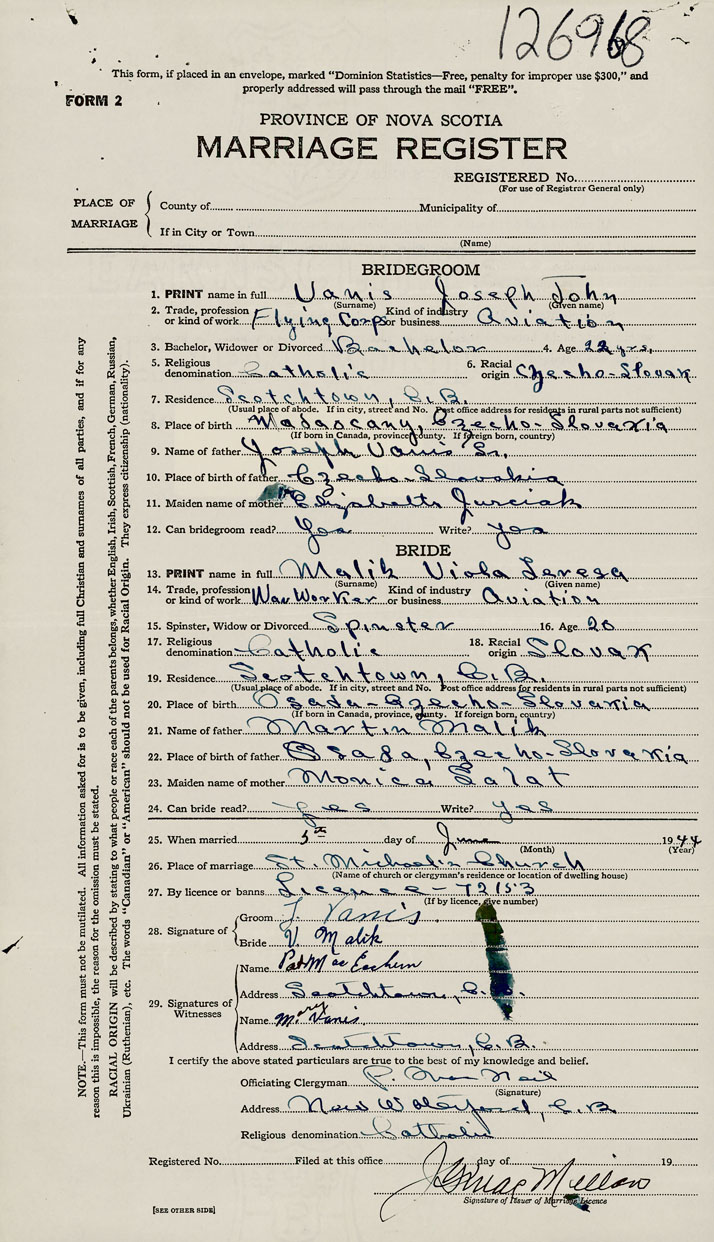 126968
This form, if placed in an envelope, marked "Dominion Statistics—Free, penalty for improper use $300," and
properly addressed will pass through the mail "FREE".
FORM 2
PROVINCE OF NOVA SCOTIA
MARRIAGE REGISTER
REGISTERED No.
(For use of Registrar General only)
PLACE OF MARRIAGE
County of Municipality of
If in City or Town
(Name)
BRIDEGROOM
1. PRINT name in full Vanis Joseph John
(Surname) (Given name)
2. Trade, profession or kind of work Flying Corps Kind of industry or business Aviation
3. Bachelor, Widower or Divorced Bachelor 4. Age 22 yrs.
5. Religious denomination Catholic 6. Racial origin Czecho-Slovak
7. Residence Scotchtown, C.B.
(Usual place of abode. If in city, street and No. Post office address for residents in rural parts not sufficient)
8. Place of birth Madascany, Czecho-Slovakia
(If born in Canada, province, county. If foreign born, country)
9. Name of father Joseph Vanis Sr.
10. Place of birth of father Czecho-Slovakia
11. Maiden name of mother Elizabeth Jurciak
12. Can bridegroom read? Yes Write? yes
BRIDE
13. PRINT name in full Malik Viola Teresa
(Surname) (Given name)
14. Trade, profession or kind of work War Worker Kind of industry or business Aviation
15. Spinster, Widow or Divorced Spinster 16. Age 20
17. Religious denomination Catholic 18. Racial origin Slovak
19. Residence Scotchtown, C.B.
(Usual place of abode. If in city, street and No. Post office address for residents in rural parts not sufficient)
20. Place of birth Osada-Czecho-Slovakia
(If born in Canada, province, county. If foreign born, country)
21. Name of father Martin Malik
22. Place of birth of father Osada, Czecho-Slovakia
23. Maiden name of mother Monica Salat
24. Can bride read? yes Write? yes
25. When married 5th day of June 1944
(Month) (Year)
26. Place of marriage St. Michael's Church
(Name of church or clergyman's residence or location of dwelling house)
27. By licence or banns Licence - 72153
(If by licence, give number)
28. Signature of
Groom J. Vanis
Bride V. Malik
29. Signatures of Witnesses
Name Pat MacEachern
Address Scotchtown, C.B.
Name Mary Vanis
Address Scotchtown, C.B.
I certify the above stated particulars are true to the best of my knowledge and belief.
Officiating Clergyman
(Signature)
Address New Waterford, C.B.
Religious denomination Catholic
Registered No. Filed at this office day of 19
Signature of Issuer of Marriage Licence
[SEE OTHER SIDE]
NOTE.—This form must not be mutilated. All information asked for is to be given, including full Christian and surnames of all parties, and if for any
reason this is impossible, the reason for the omission must be stated.
RACIAL ORIGIN will be described by stating to what people or race each of the parents belongs, whether English, Irish, Scottish, French, German, Russian,
Ukrainian (Ruthenian), etc. The words "Canadian" or "American" should not be used for Racial Origin. They express citizenship (nationality).